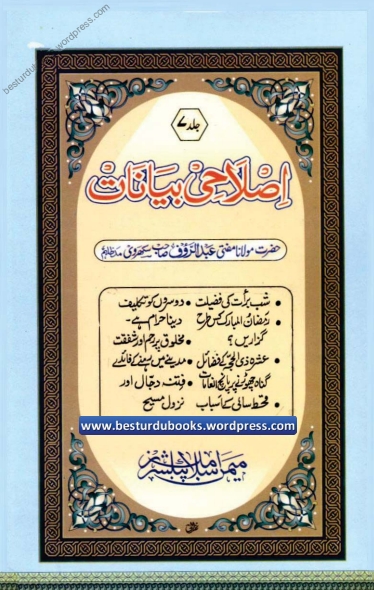 besturdubooks.wordpress.com
جلد ۷
اصلاحی بیانات
حضرت مولانا مفتی عبدالرؤف صاحب سکھروی مدظلہم
شب برأت کی فضیلت
رمضان المبارک کس طرح
گزاریں؟
عشرہ ذی الحجہ کے فضائل
گناہ چھوڑنے پر پانچ انعامات
قحط سالی کے اسباب
دوسروں کو تکلیف
دینا حرام ہے۔
مخلوق پر رحم اور شفقت
مدینے میں بسنے کے فائدے
فتنہ دجال اور
نزول مسیح
www.besturdubooks.wordpress.com
میمن اسلامک پبلشرز